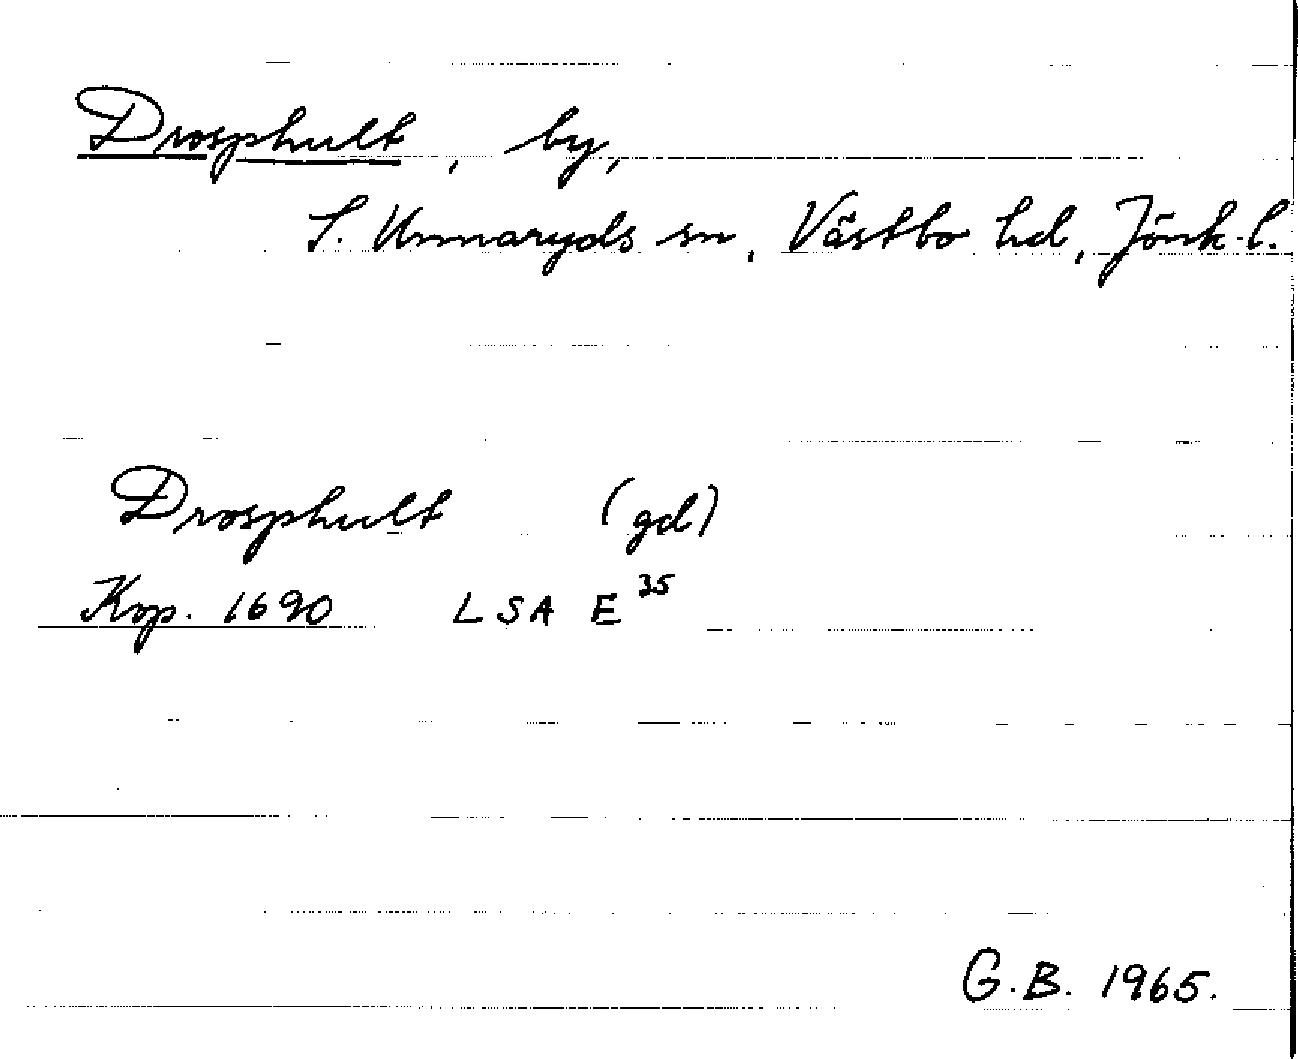 Drosphult, by,
S. Unnaryds sn, Västbo hd, Jönk. l.
Drosphult (gd)
Kop. 1690 LSA E 35
G.B. 1965.